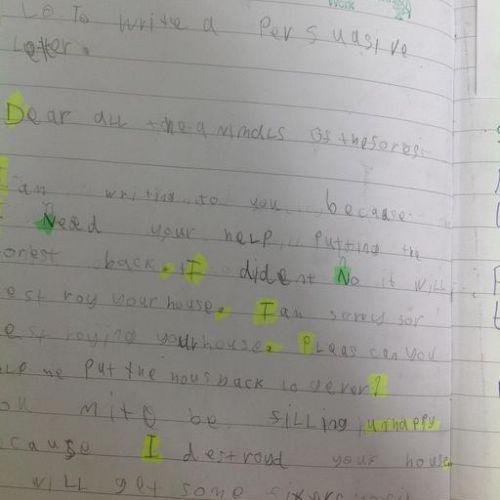 Work
LO To write a Persuasive
Letter.
Dear all the animals of the forest
I am writing to you because
I Need your help, putting the
forest back. I dident No it will
destroy your house. I am sorry for
destroying your house. Pleas can you
help me put the hous back to
You mito be filling unhappy
because I destroyd your house
will get some